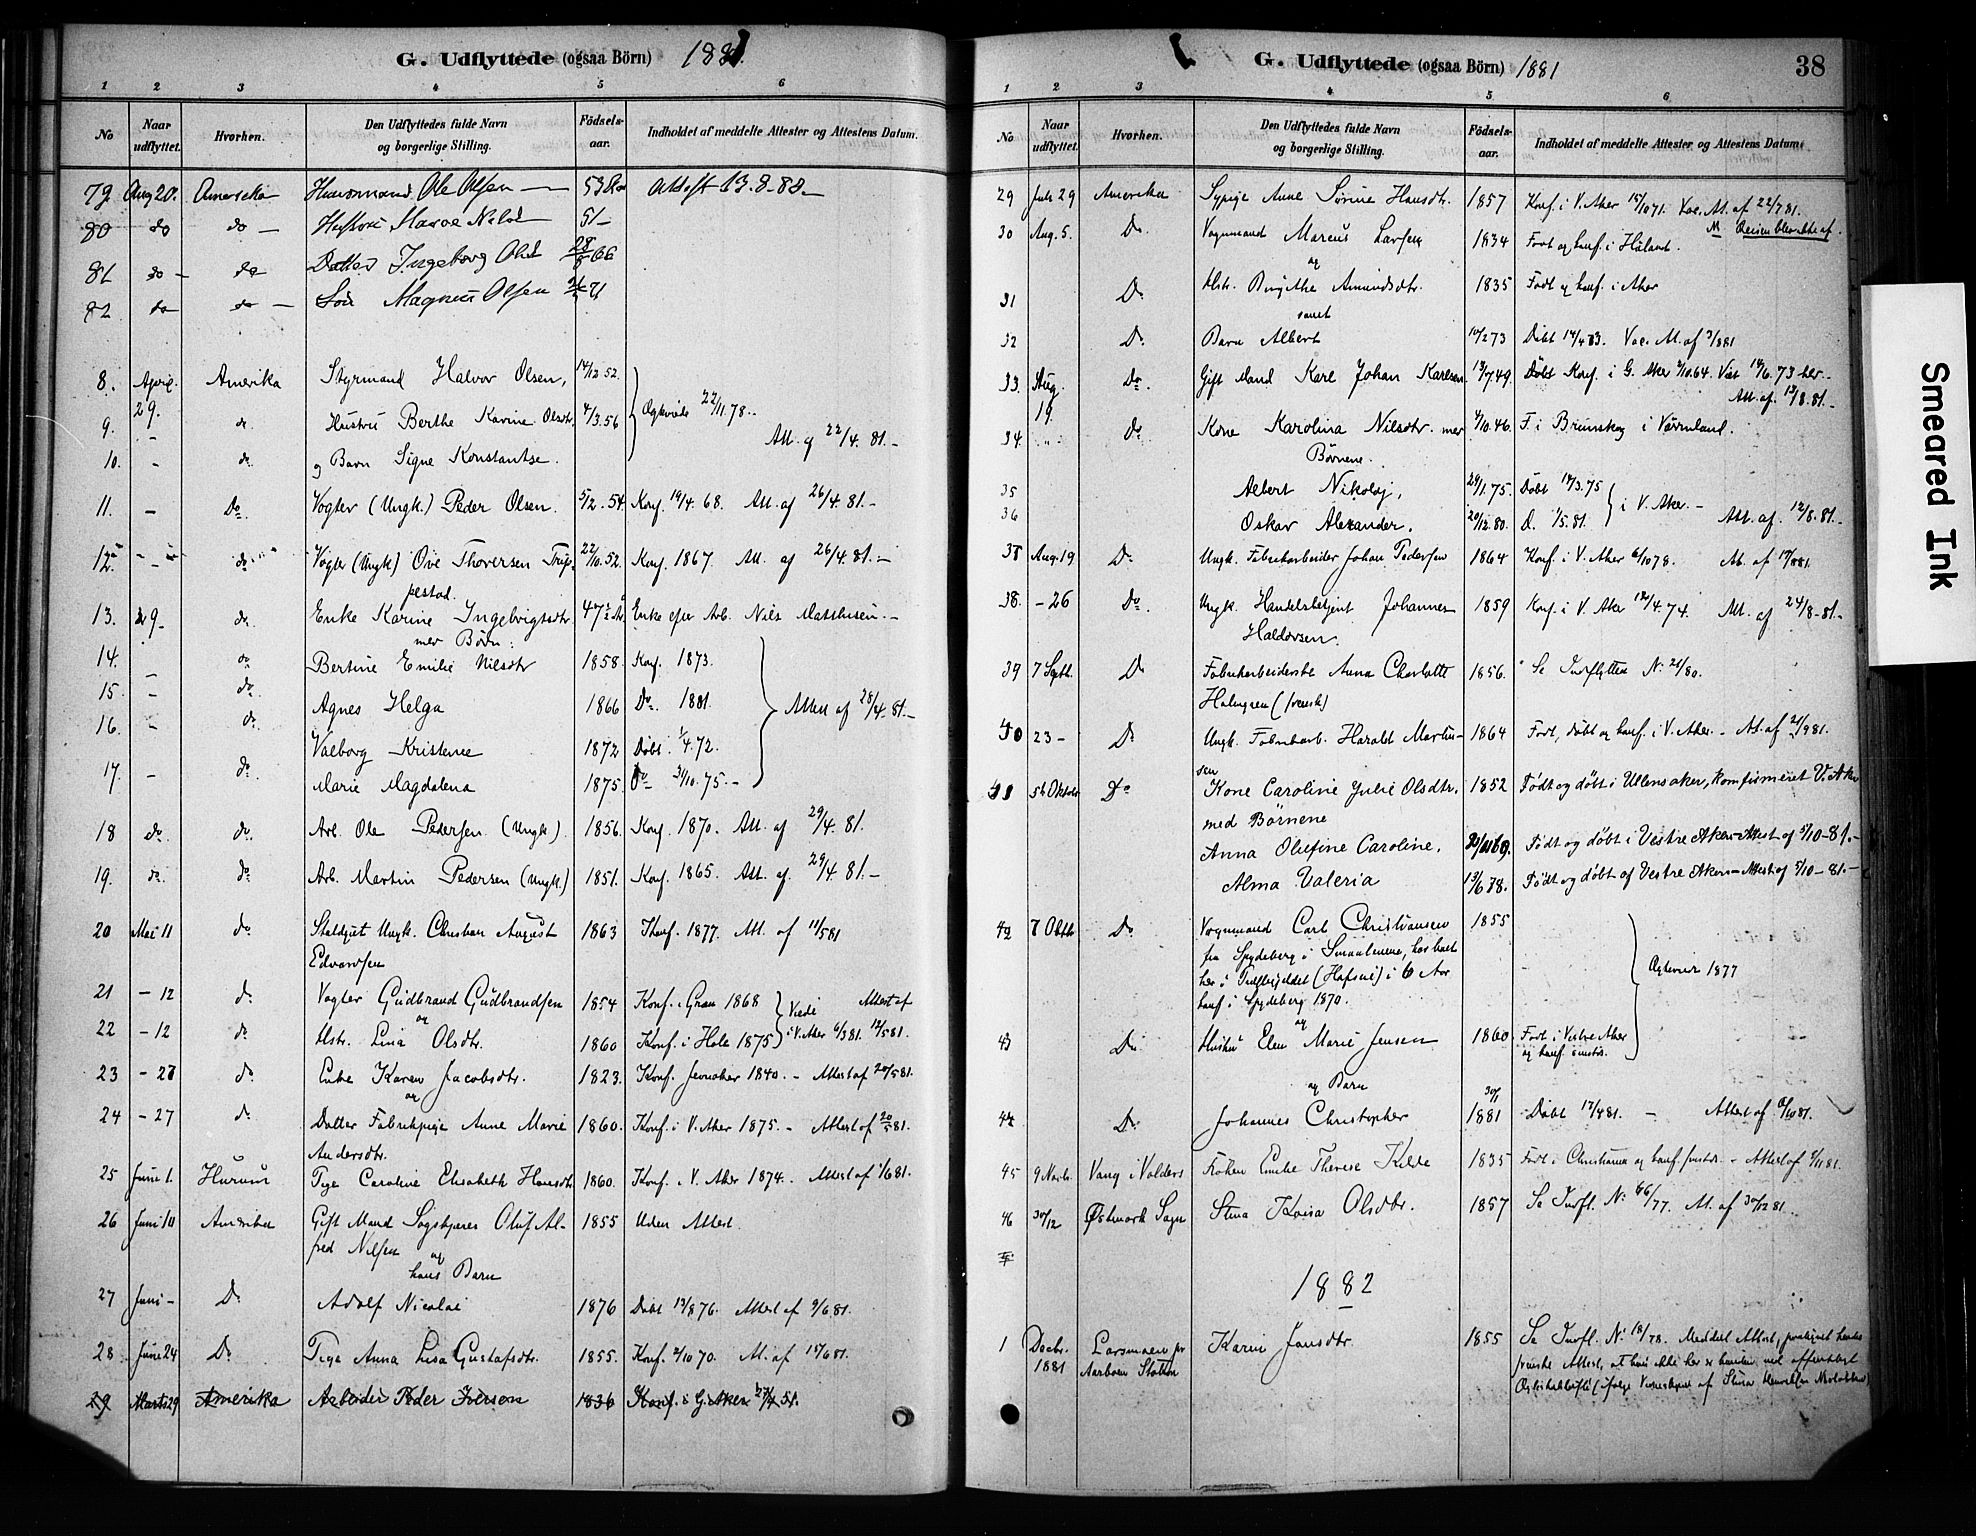 G. Udflyttede (ogsaa Börn) 1881.
1 2 3 4 5 6
No Naar udflyttet. Hvorhen. Den Udflyttedes fulde Navn og borgerlige Stilling. Födsels-aar. Indholdet af meddelte Attester og Attestens Datum.
79. Aug 20. Amerika Ole Olsen
80 do do
81 do do Datter Ingeborg 28/8 66
82 do do Søn Magnus Olsen
8. April 29. Amerika Styrmand Halvor Olsen, 14/12 52.
9. - do Hustru Berthe Karine Olsdtr 4/3.56 Ægteviede 22/11.78.-
Att. af 22/4. 81.-
10. - do og Barn Signe Konstantse.
11. - Do. Vogter (Ungk.) Peder Olsen. 5/12.54. Konf. 19/4. 68. Att. af 26/4. 81.-
12. - do Vogter (Ungk) Ove Thoversen 22/10.52. Konf. 1867. Att. af 26/4. 81.-
pestad.
13. 29. do. Enke Karine Ingebrigtsdtr. 47 1/2 Enke efter Arb. Nils Matthisen.-
med Børn:
14. do Bertine Emilie Nilsdtr 1858. Konf. 1873.
15. - do. Agnes Helga 1866 Do. 1881.
Attest af 28/4. 81.-
16. - do. Valborg Kristense 1872 Døbt 1/4.72.
17. - do. Marie Magdalena 1875. Do 31/10. 75.-
18 do. do. Arb. Ole Pedersen. (Ungk.) 1856. Konf. 1870. Att. af 29/4. 81.
19. do. do. Arb. Martin Pedersen (Ungk.) 1851. Konf. 1865. Att. af 29/4 81.-
20 Mai 11 do. Staldgut Ungk. Christian August 1863 Konf. 1877. Att. af 11/5 81
Edvardsen
21 - 12 do. Vogter Gudbrand Gudbrandsen 1854 Konf. i Gran 1868 Viede Attest af
og
22 - 12 do. Hstr. Lina Olsdtr. 1860 Konf. i Hole 1875 i V. Aker 6/3 81. 12/5 81.
23 - 27 do. Enke Karen Jacobsdtr. 1823. Konf. Jevnaker 1840. - Attest af 20/5 81.
og
24 - 27 do. Datter Fabrikpige Anne Marie 1860. Konf. i V. Aker 1875. - Attest af 20/5 81.
Andersdtr.
25 Juni 1. Hurum Pige Caroline Elisabeth Hansdtr 1860. Konf. i V. Aker 1874. Attest af 1/6 81.
26 Juni 10 Amerika Gift Mand Oluf Al- 1855 Uden Attest.
fred Nilsen og
hans Barn
27 Juni - Do Adolf Nicolai 1876 Døbt 13/8 76. Attest af 9/6 81.
28 Juni 24 Do. Pige Anna Lisa Gustafsdtr. 1855. Konf. 2/10 70. At. af 15/6 81.
29 Marts 29 Amerika Arbeider Peder Iversen 1836 Konf. i G. Aker 27/4 51.
G. Udflyttede (ogsaa Börn) 1881
38
1 2 3 4 5 6
No Naar udflyttet. Hvorhen. Den Udflyttedes fulde Navn og borgerlige Stilling. Födsels-aar. Indholdet af meddelte Attester og Attestens Datum.
29 Juli 29 Amerika Sypige Anne Sørine Hansdtr. 1857 Konf. i V. Aker 15/10 71. Vac. At. af 22/7 81.
30 Aug. 5. Do. Vognmand Marcus Larsen 1834 Født og konf. i Høland.
og
31 Do. Hstr. Birgithe Amundsdtr. 1835 Født og konf. i Aker
samt
32 Do. Barn Albert 10/2 73 Døbt 14/4 73. Vac. At. af 3/8 81
33. Aug. 19. Do. Gift Mand Karl Johan Karlsen 13/7.49. Døbt Konf. i G. Aker 2/10.64. Viet 14/6. 73 her.-
Att. af. 12/8. 81.-
34 Do Kone Karolina Nilsdtr. med 4/10.46. F. i Brunskog i Värmland.
Børnene.
35 Albert Nikolaj, 29/1.75. Døbt 17/3.75
i V. Aker.- Att. af. 12/8. 81.-
36 Oskar Alexander. 20/12.80. D. 1/5.81.
38 Aug. 19 Do. Ungk. Fabrikarbeider Johan Pedersen 1864 Konf. i V. Aker 6/10 78. At. af 17/8 81.
38. - 26 Do. Ungk. Handelsbetjent Johannes 1859 Konf. i V. Aker 12/4.74. Att. af 24/8-81.-
Haldorsen.
39 7 Septb. Do Fabrikarbeiderske Anna Charlotte 1856. Se Indflyttede No. 21/80.
Holmgren (svensk)
40 23 - Do. Ungk. Fabrikarb. Harald Martin- 1864 Født, døbt og konf. i V. Aker. - At. af 21/9 81.
sen
41 5te Oktober Do Kone Caroline Julie Olsdtr. 1852 Født og døbt i Ullensaker, komfirmeret V. Aker
med Børnene
Anna Olufine Caroline. Født og døbt i Vestre Aker. Attest af 5/10-81.-
Alma Valeria 13/6 78. Født og døbt af Vestre Aker. Attest af 5/10-81.-
42 7 Oktb. Do. Vognmand Carl Christiansen 1855
fra Spydeberg i Smaalenene, har boet
her i (Hafsni) i 6 Aar
konf. i Spydeberg 1870.
Ægteviet 1877
og
43 Do. Hustru Elen Marie Jensen 1860 Født i Vestre Aker
og konf.
og Barn 30/1
44 Do. Johannes Christopher 1881 Døbt 17/4 81. - Attest af 6/10 81.
45 9 Novb. Vang i Valders Frøken Emilie Therese Kilde 1835 Født i Christiania og konf. - Attest af 9/11 81.
46 30/12 Østmark Sogn Stina Kaisa Olsdtr. 1857 Se Indfl. No. 66/77. At. af 30/12 81.
1882
1 Decbr. 1881 Karin Jansdtr. 1855 Se Indfl. No. 18/78. Meddelt Attest,
Station svenske Attest, at hun ikke har
Smeared Ink